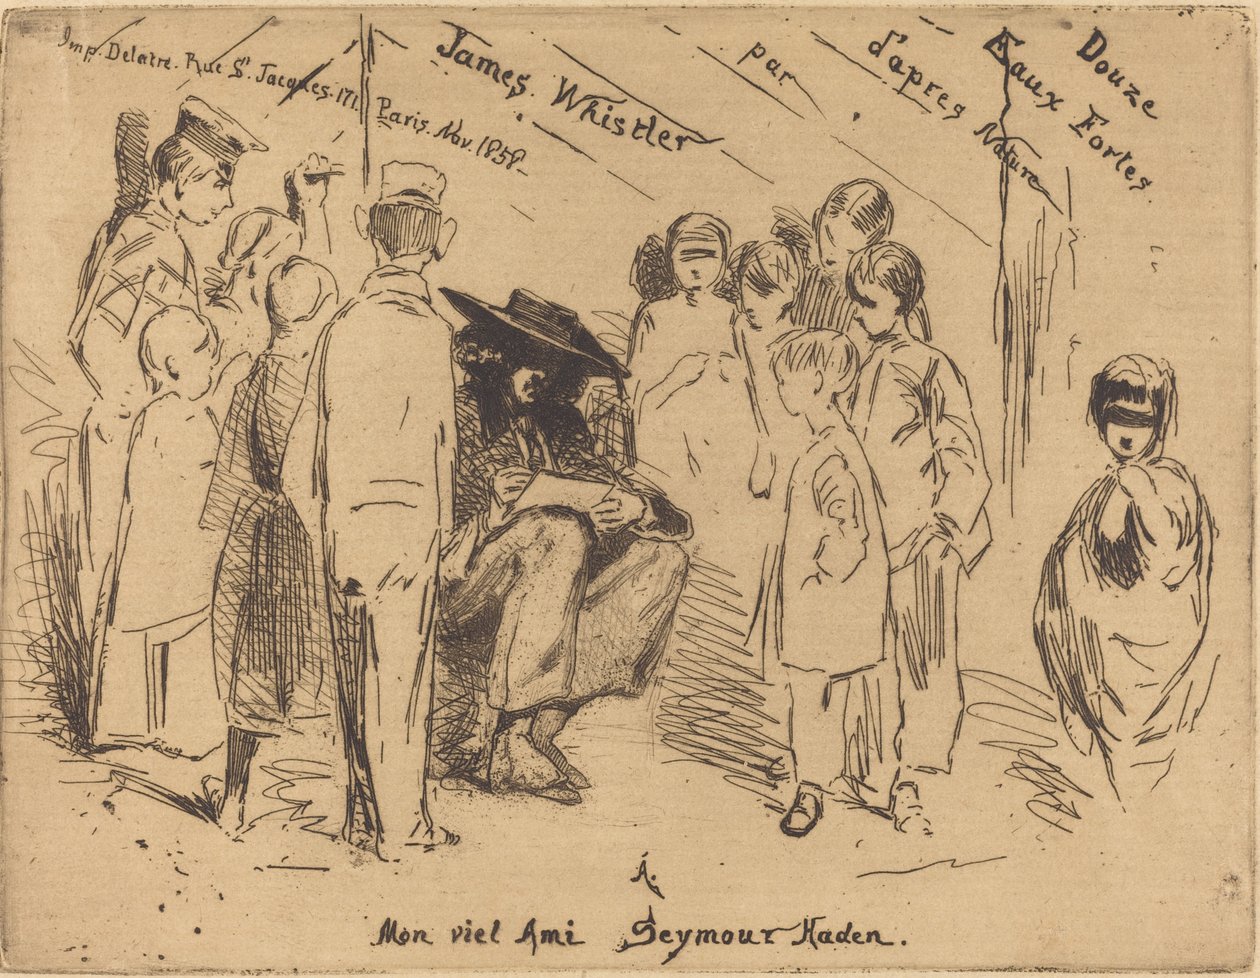 Douze
Eaux Fortes
d'apres Nature
par
James. Whistler
Imp. Delatre. Rue St. Jacques. 171.
Paris. Nov. 1858.
A.
Mon viel Ami Seymour Haden.